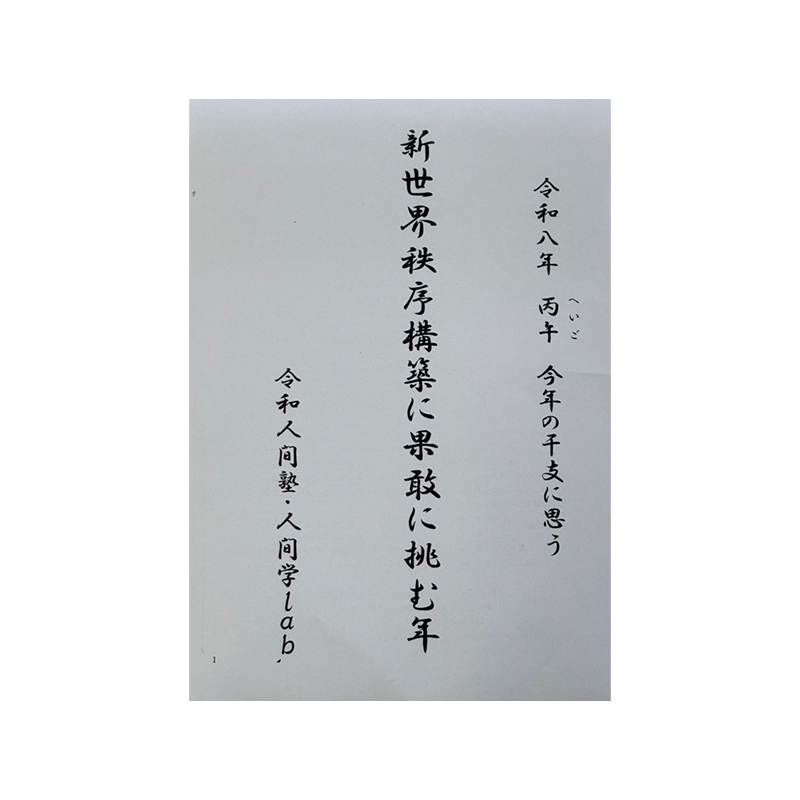 令和八年 丙午 今年の干支に思う
へいご
新世界秩序構築に果敢に挑む年
令和人間塾・人間学lab.
1